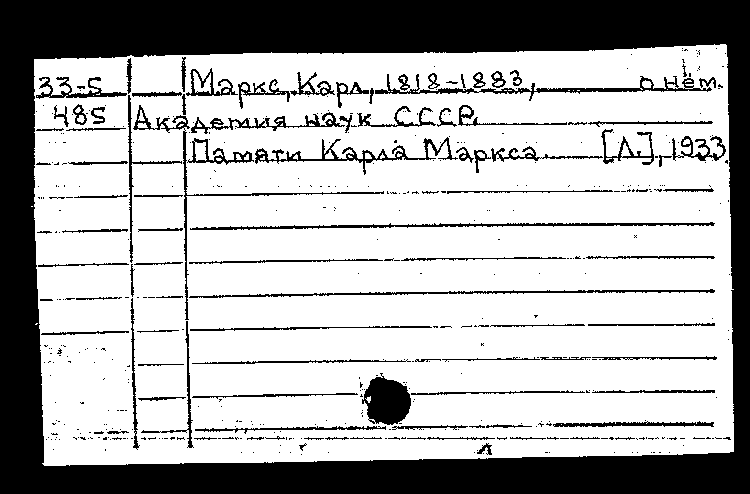 33-5 Маркс, Карл, 1818-1883, о нём.
485 Академия наук СССР.
Памяти Карла Маркса. [Л.], 1933